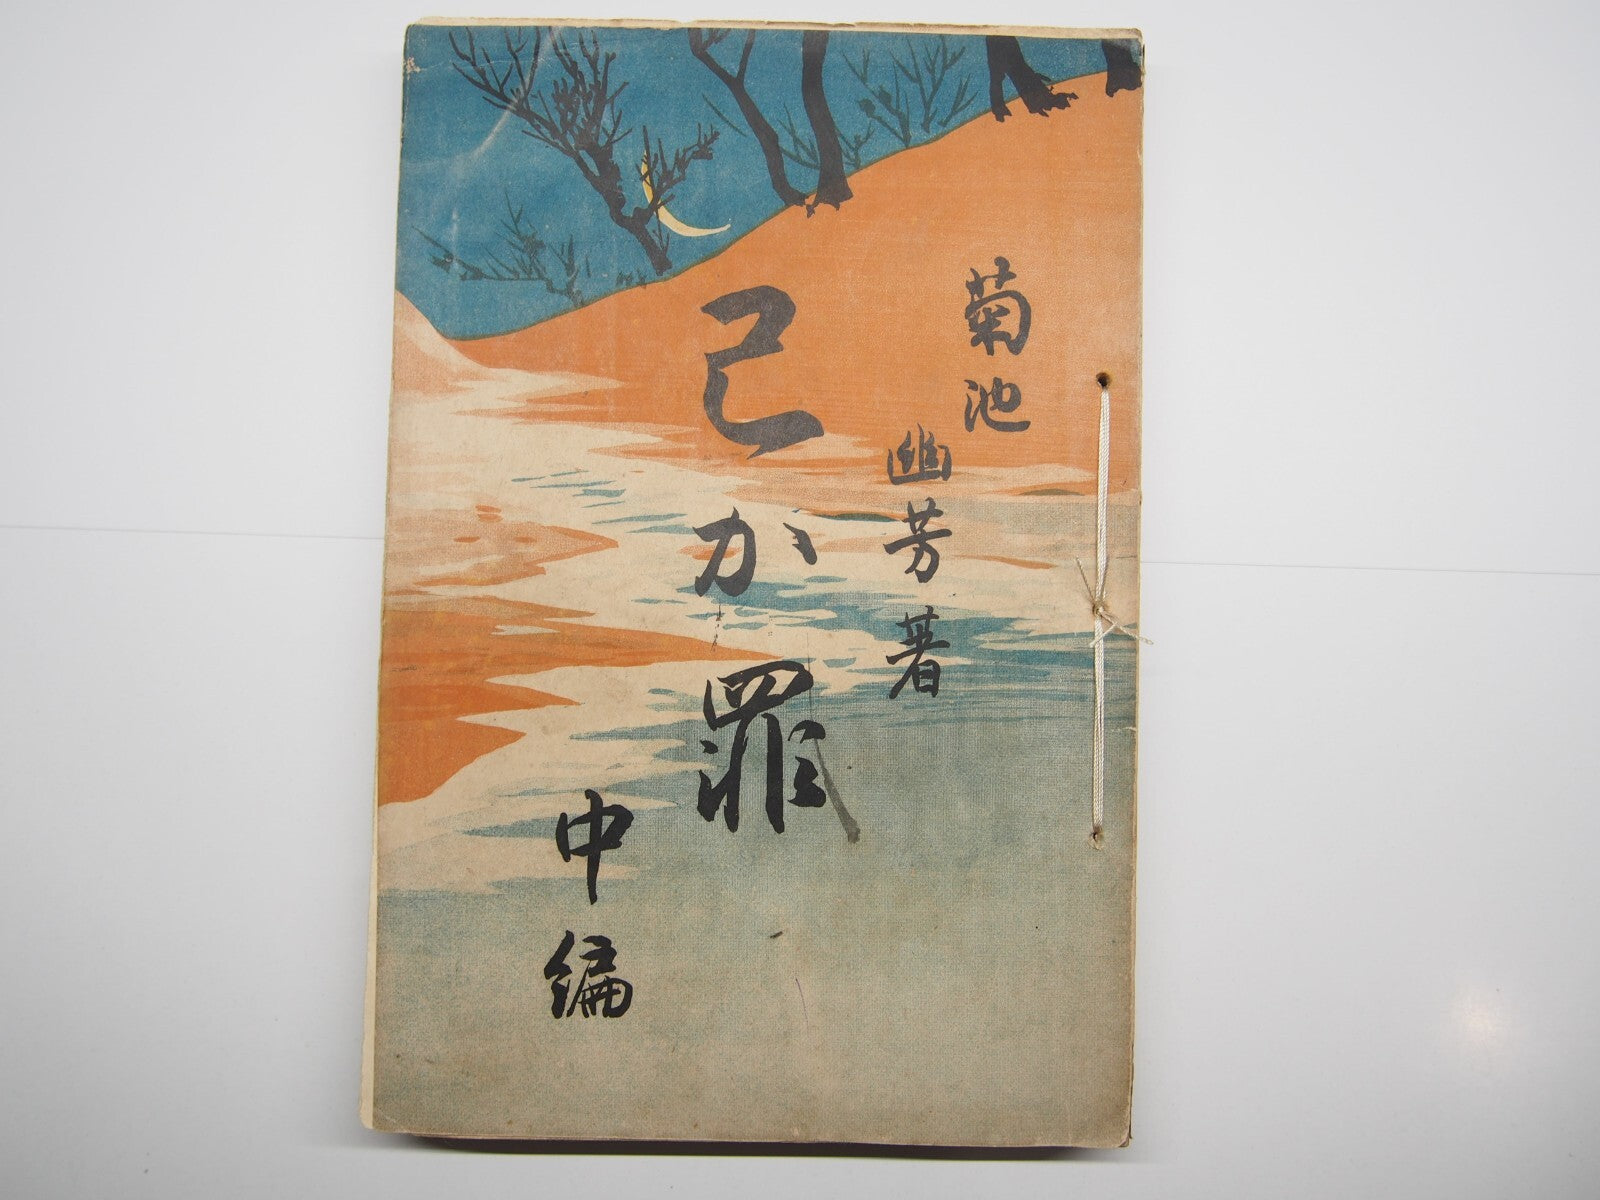 菊池
幽芳著
己が罪
中編